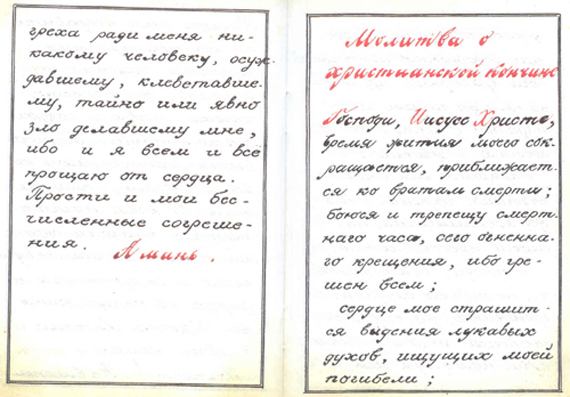 греха ради меня ни-
какому человеку, осуж-
давшему, клеветавше-
му, тайно или явно
зло делавшему мне,
ибо и я всем и всё
прощаю от сердца.
Прости и мои бес-
численные согреше-
ния. Аминь.
Молитва о
христианской кончине
Господи, Иисусе Христе,
время жития моего сок-
ращается, приближает-
ся ко вратам смерти;
боюся и трепещу смерт-
наго часа, сего огненна-
го крещения, ибо гре-
шен всем;
сердце мое страшит-
ся видения лукавых
духов, ищущих моей
погибели;